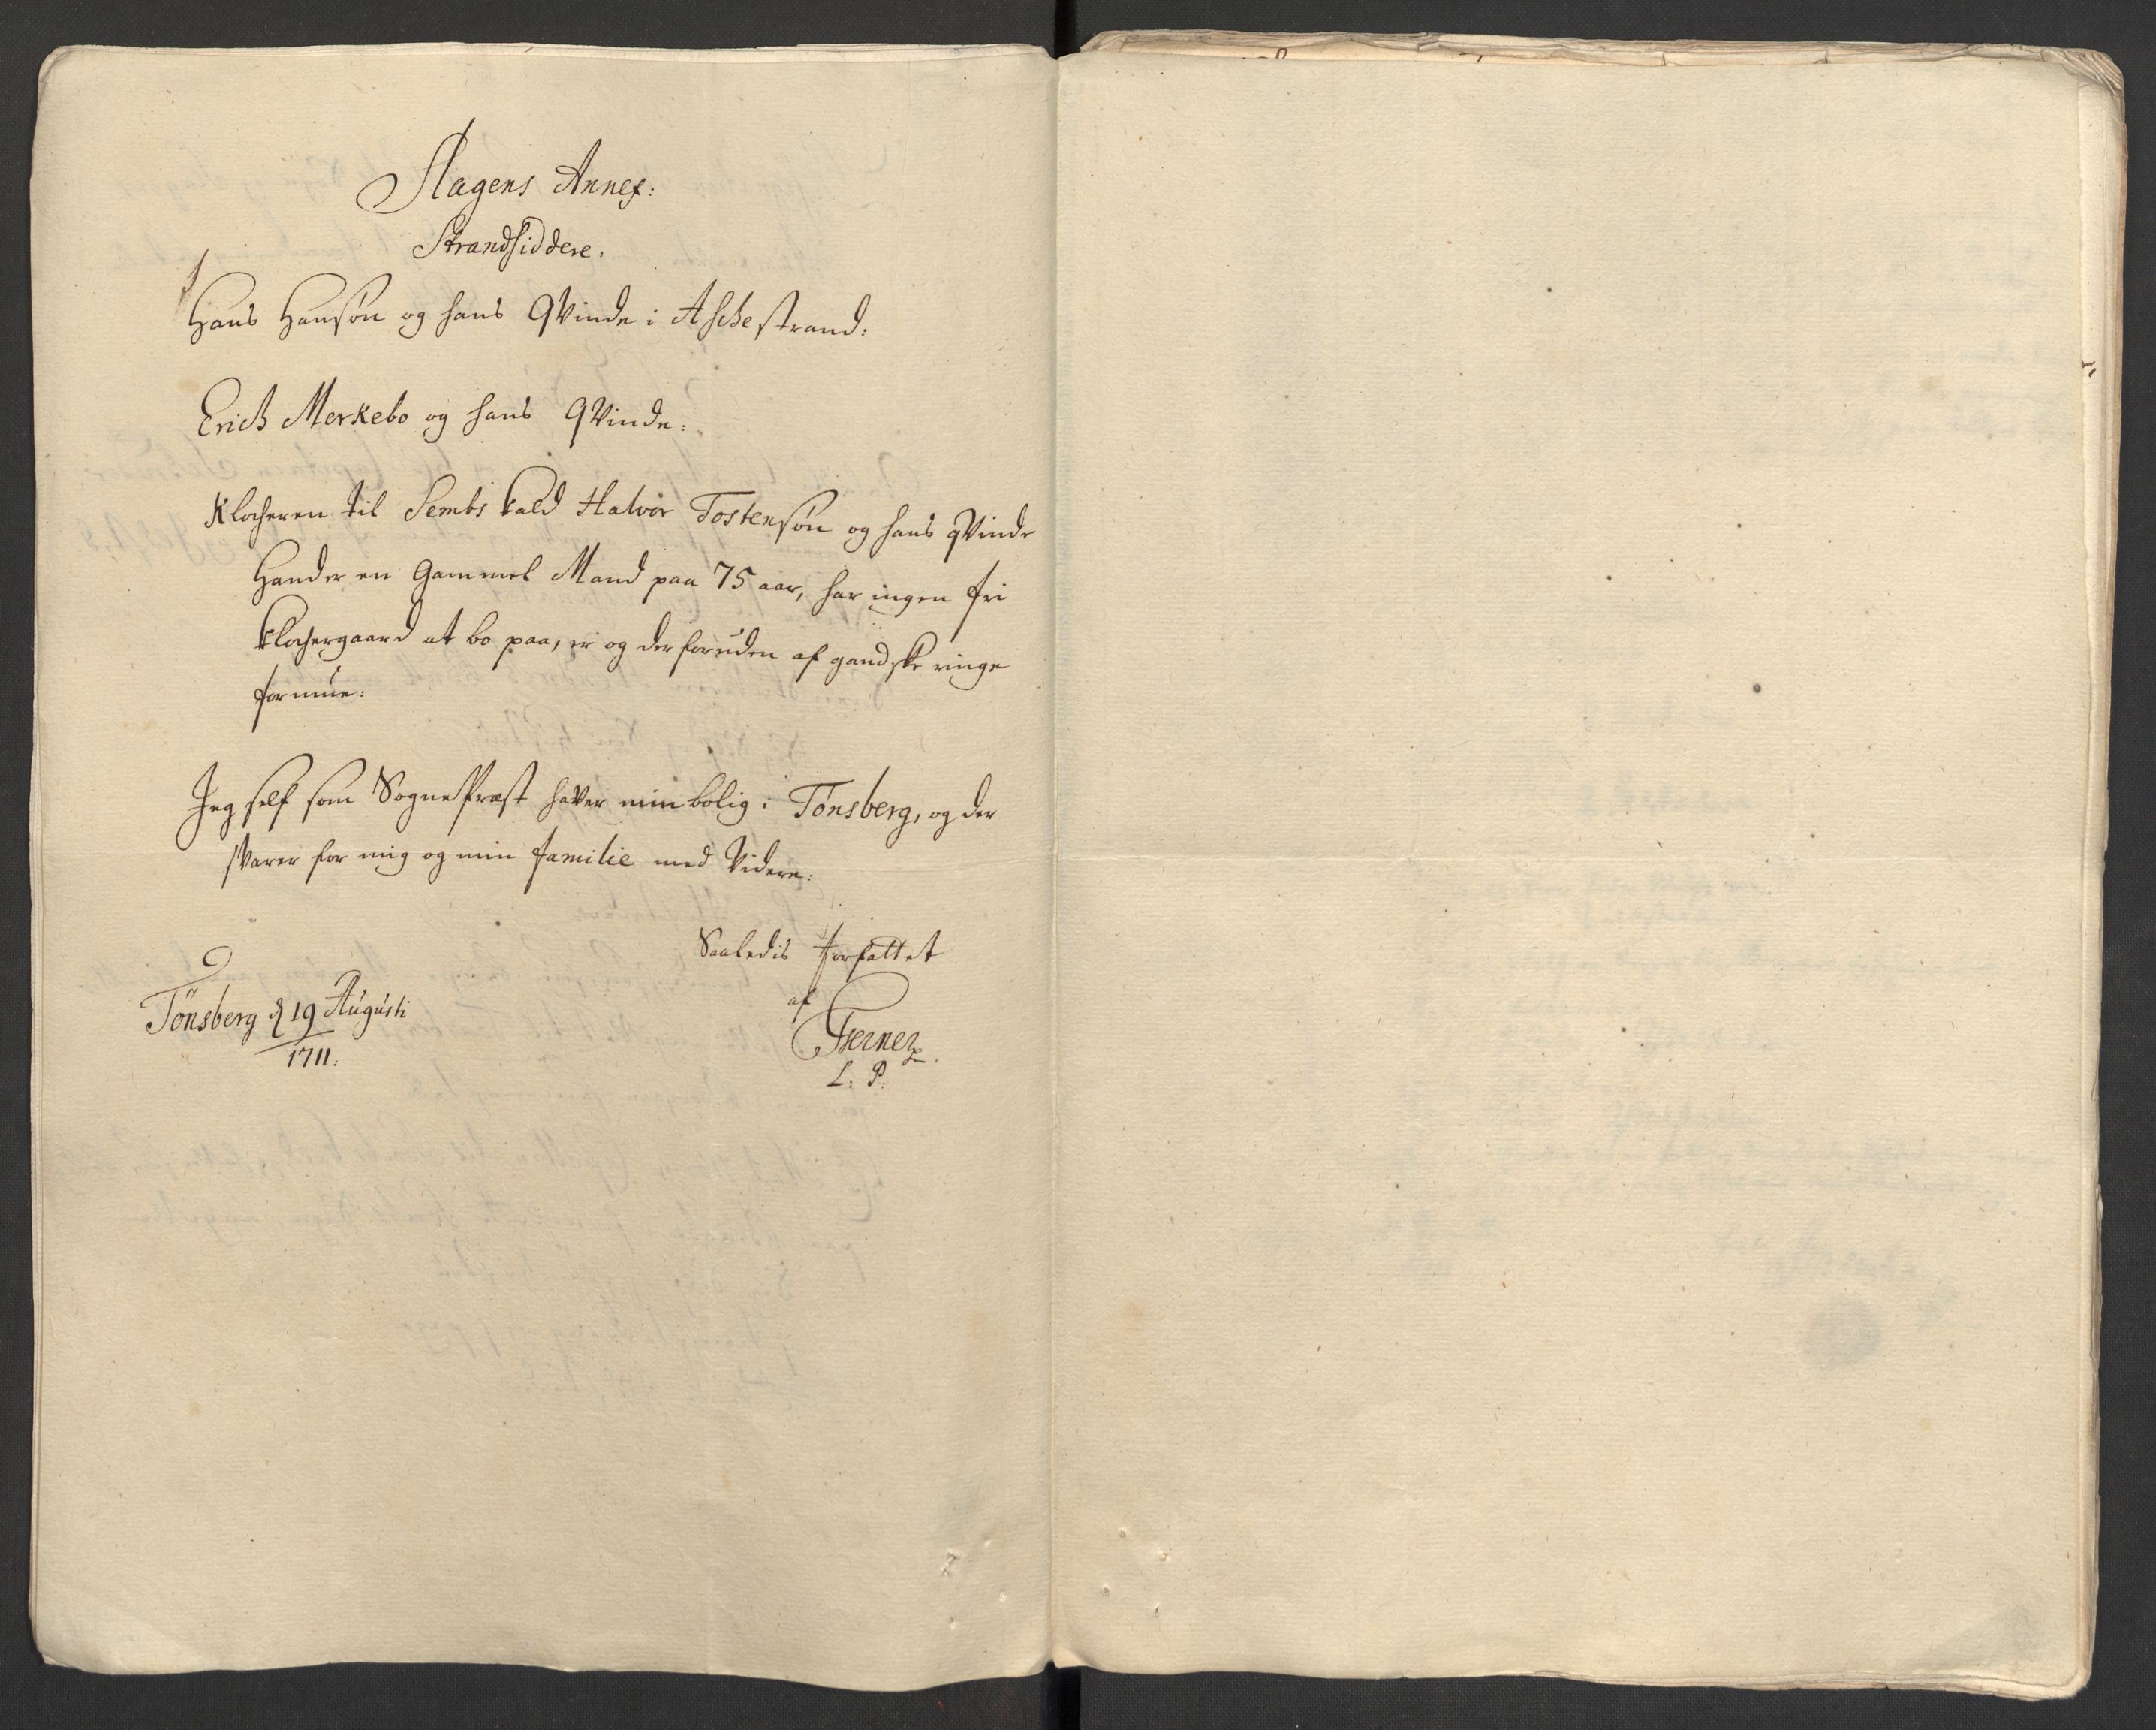 Slagens Annex:
Strandsiddere:
Hans Hansøn og hans qvinde i Aschestrand:
Erich Merkebo og hans qvinde:
Klocheren til Sembs kald Halvor Tostensøn og hans qvinde
Hand er en Gammel Mand paa 75 aar, har ingen fri
klochergaard at bo paa, er og der foruden af gandske ringe
formue:
Jeg self som SognePræst haver min bolig i Tønsberg, og der
svarer for mig og min familie med Videre:
Saaledis forfattet
af
Tønsberg d 19 Augusti
1711:
L: P: